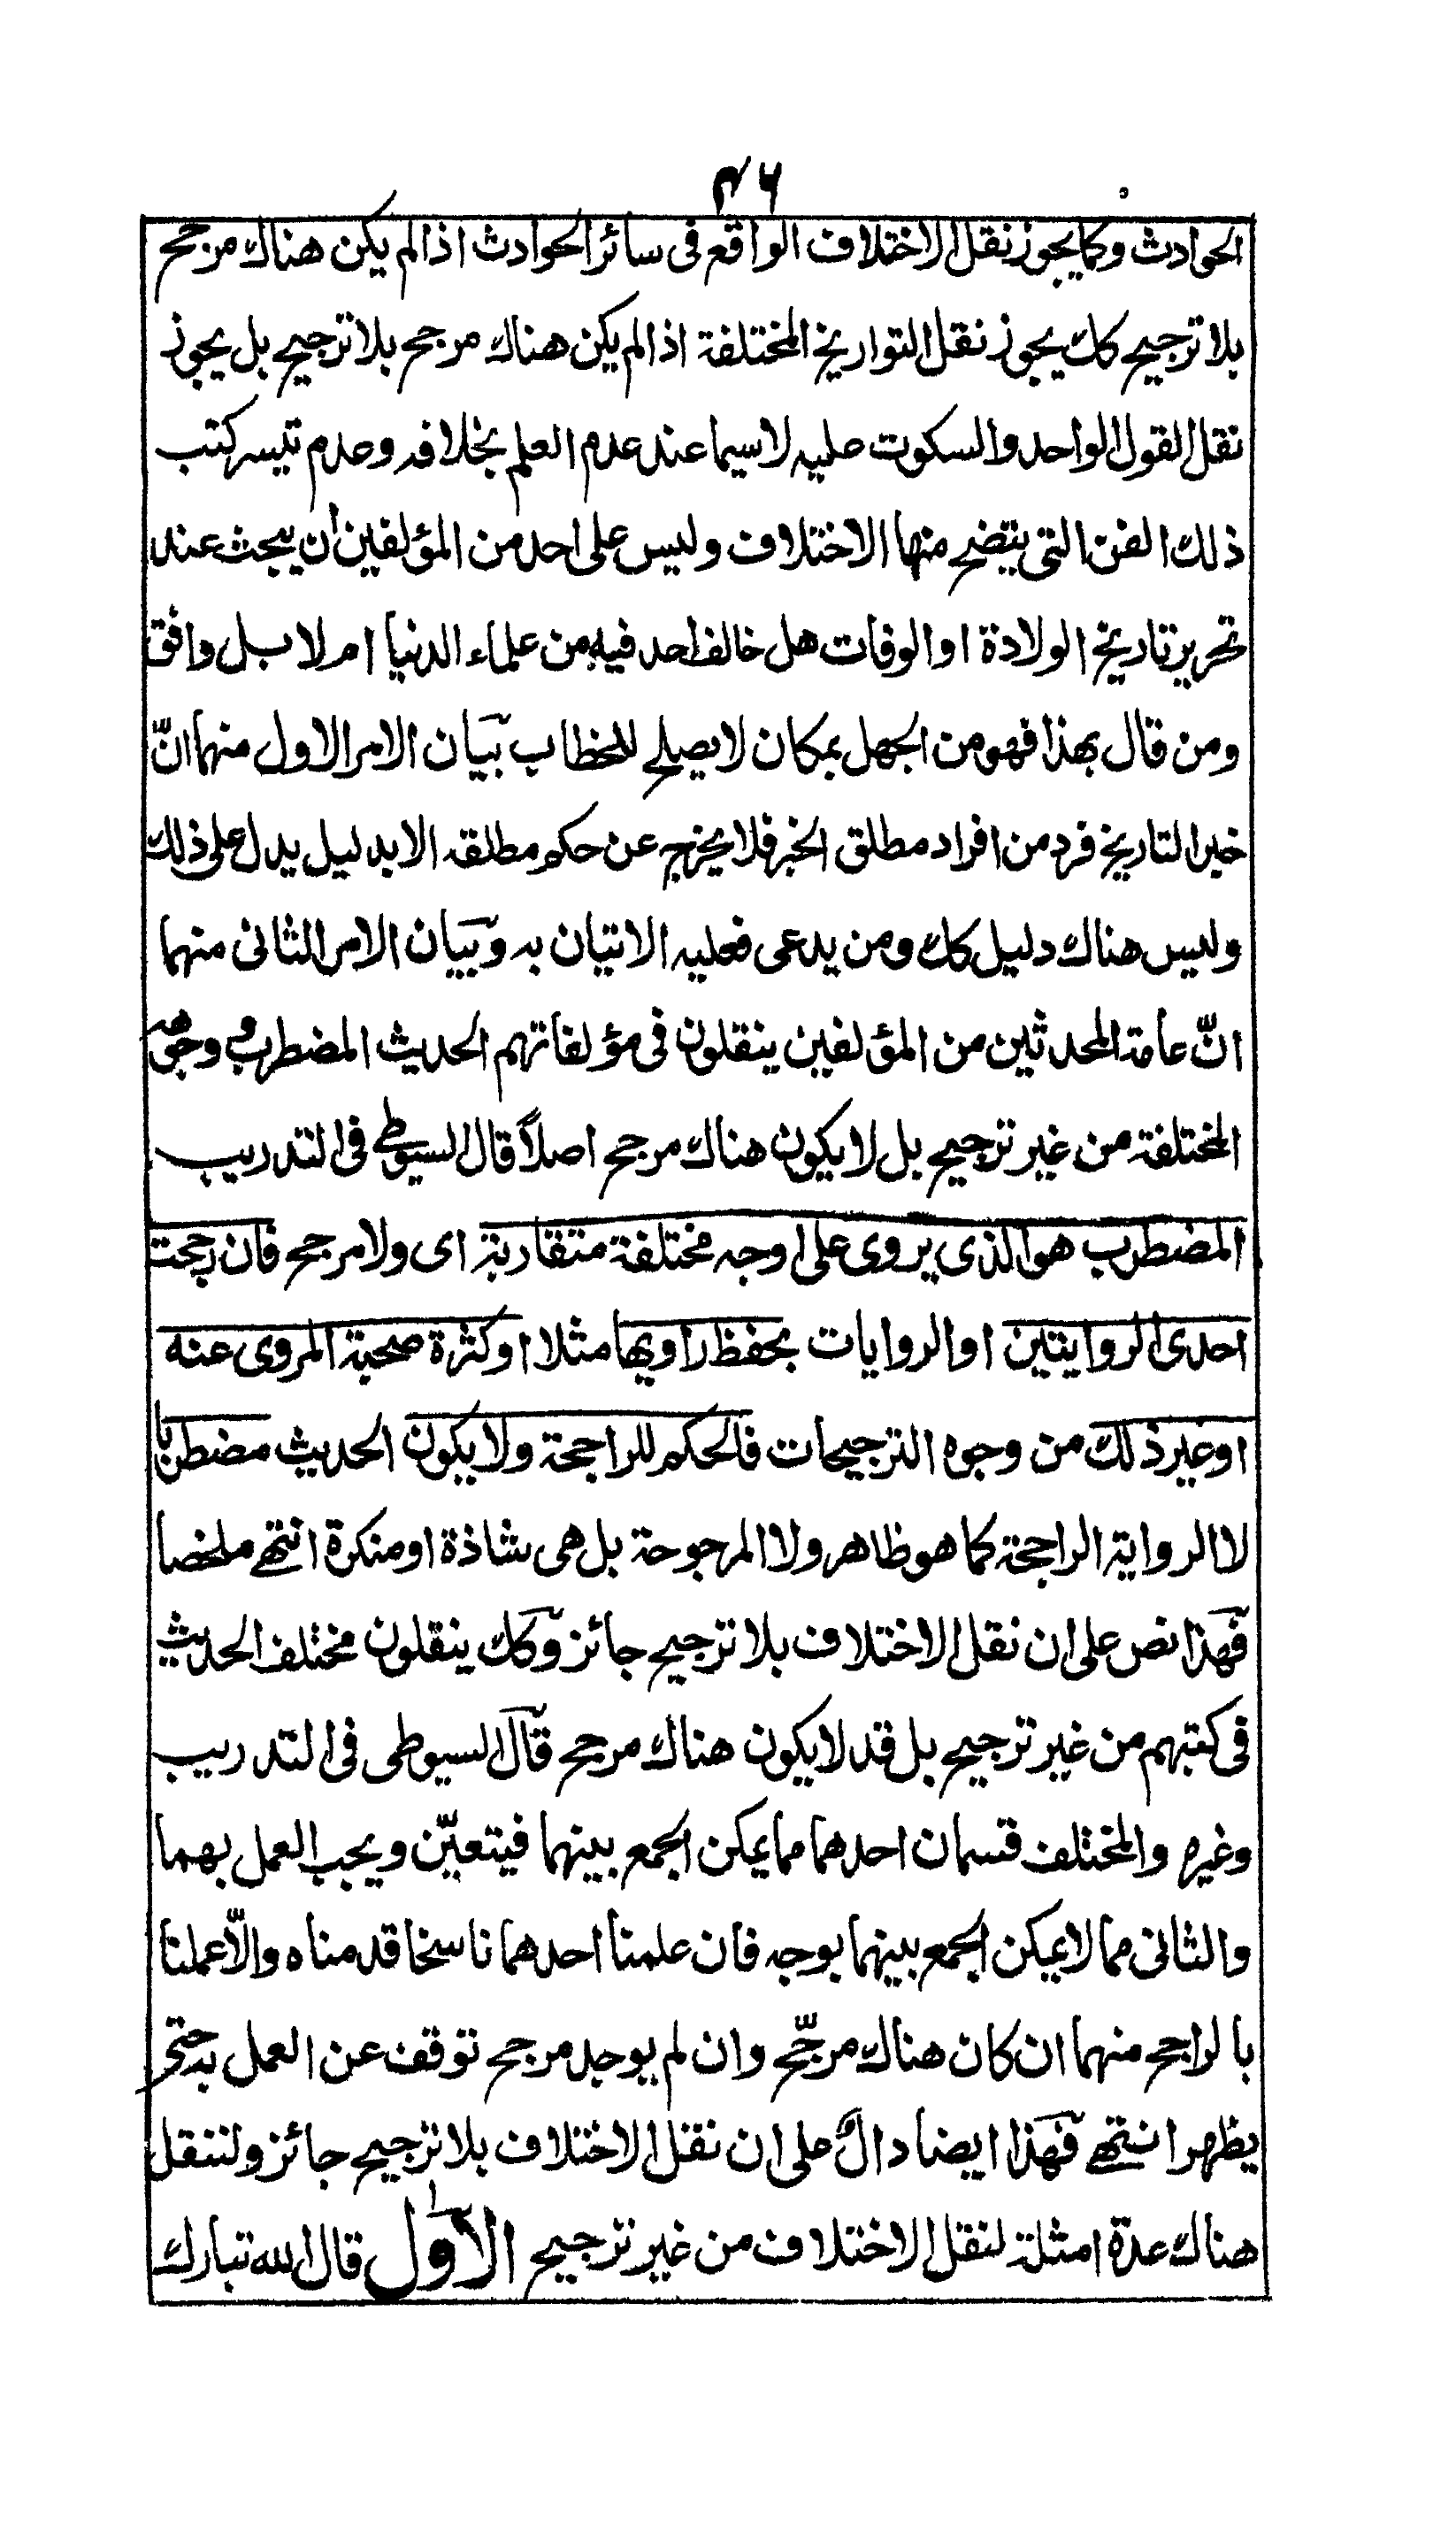 ۴۶
الحوادث وكما يجوز نقل الاختلاف الواقع فى سائر الحوادث اذا لم يكن هناك مرجح
بلا ترجيح كك يجوز نقل التواريخ المختلفة اذا لم يكن هناك مرجح بلا ترجيح بل يجوز
نقل القول الواحد والسكوت عليه لاسيما عند عدم العلم بخلافه وعدم تيسر كتب
ذلك الفن التى يتضح منها الاختلاف وليس على احد من المؤلفين ان يبحث عند
تحرير تاريخ الولادة او الوفات هل خالف احد فيه من علماء الدنيا ام لا بل وافق
ومن قال بهذا فهو من الجهل بمكان لا يصلح للخطاب بيان الامر الاول منهما انّ
خبر التاريخ فرد من افراد مطلق الخبر فلا يخرج عن حكم مطلقه الا بدليل يدل على ذلك
وليس هناك دليل كك ومن يدعى فعليه الاتيان به وبيان الامر الثانى منهما
انّ عامة المحدثين من المؤلفين ينقلون فى مؤلفاتهم الحديث المضطرب وجوهه
المختلفة من غير ترجيح بل لا يكون هناك مرجح اصلاً قال السيوطى فى التدريب
المضطرب هو الذى يروى على اوجه مختلفة متقاربة اى ولا مرجح فان رجحت
احدى الروايتين او الروايات بحفظ راويها مثلا او كثرة صحبة المروى عنه
او غير ذلك من وجوه الترجيحات فالحكم للراجحة ولا يكون الحديث مضطربا
لا الرواية الراجحة كما هو ظاهر ولا المرجوحة بل هى شاذة او منكرة انتهے ملخصا
فهذا نص على ان نقل الاختلاف بلا ترجيح جائز وكك ينقلون مختلف الحديث
فى كتبهم من غير ترجيح بل قد لا يكون هناك مرجح قال السيوطى فى التدريب
وغيره والمختلف قسمان احدهما مما يمكن الجمع بينهما فيتعيّن ويجب العمل بهما
والثانى مما لا يمكن الجمع بينهما بوجه فان علمنا احدهما ناسخا قدمناه والّا عملنا
بالراجح منهما ان كان هناك مرجّح وان لم يوجد مرجح توقف عن العمل به حتى
يظهر انتهے فهذا ايضا دالٌ على ان نقل الاختلاف بلا ترجيح جائز ولننقل
هناك عدة امثلة لنقل الاختلاف من غير ترجيح الاول قال الله تبارك